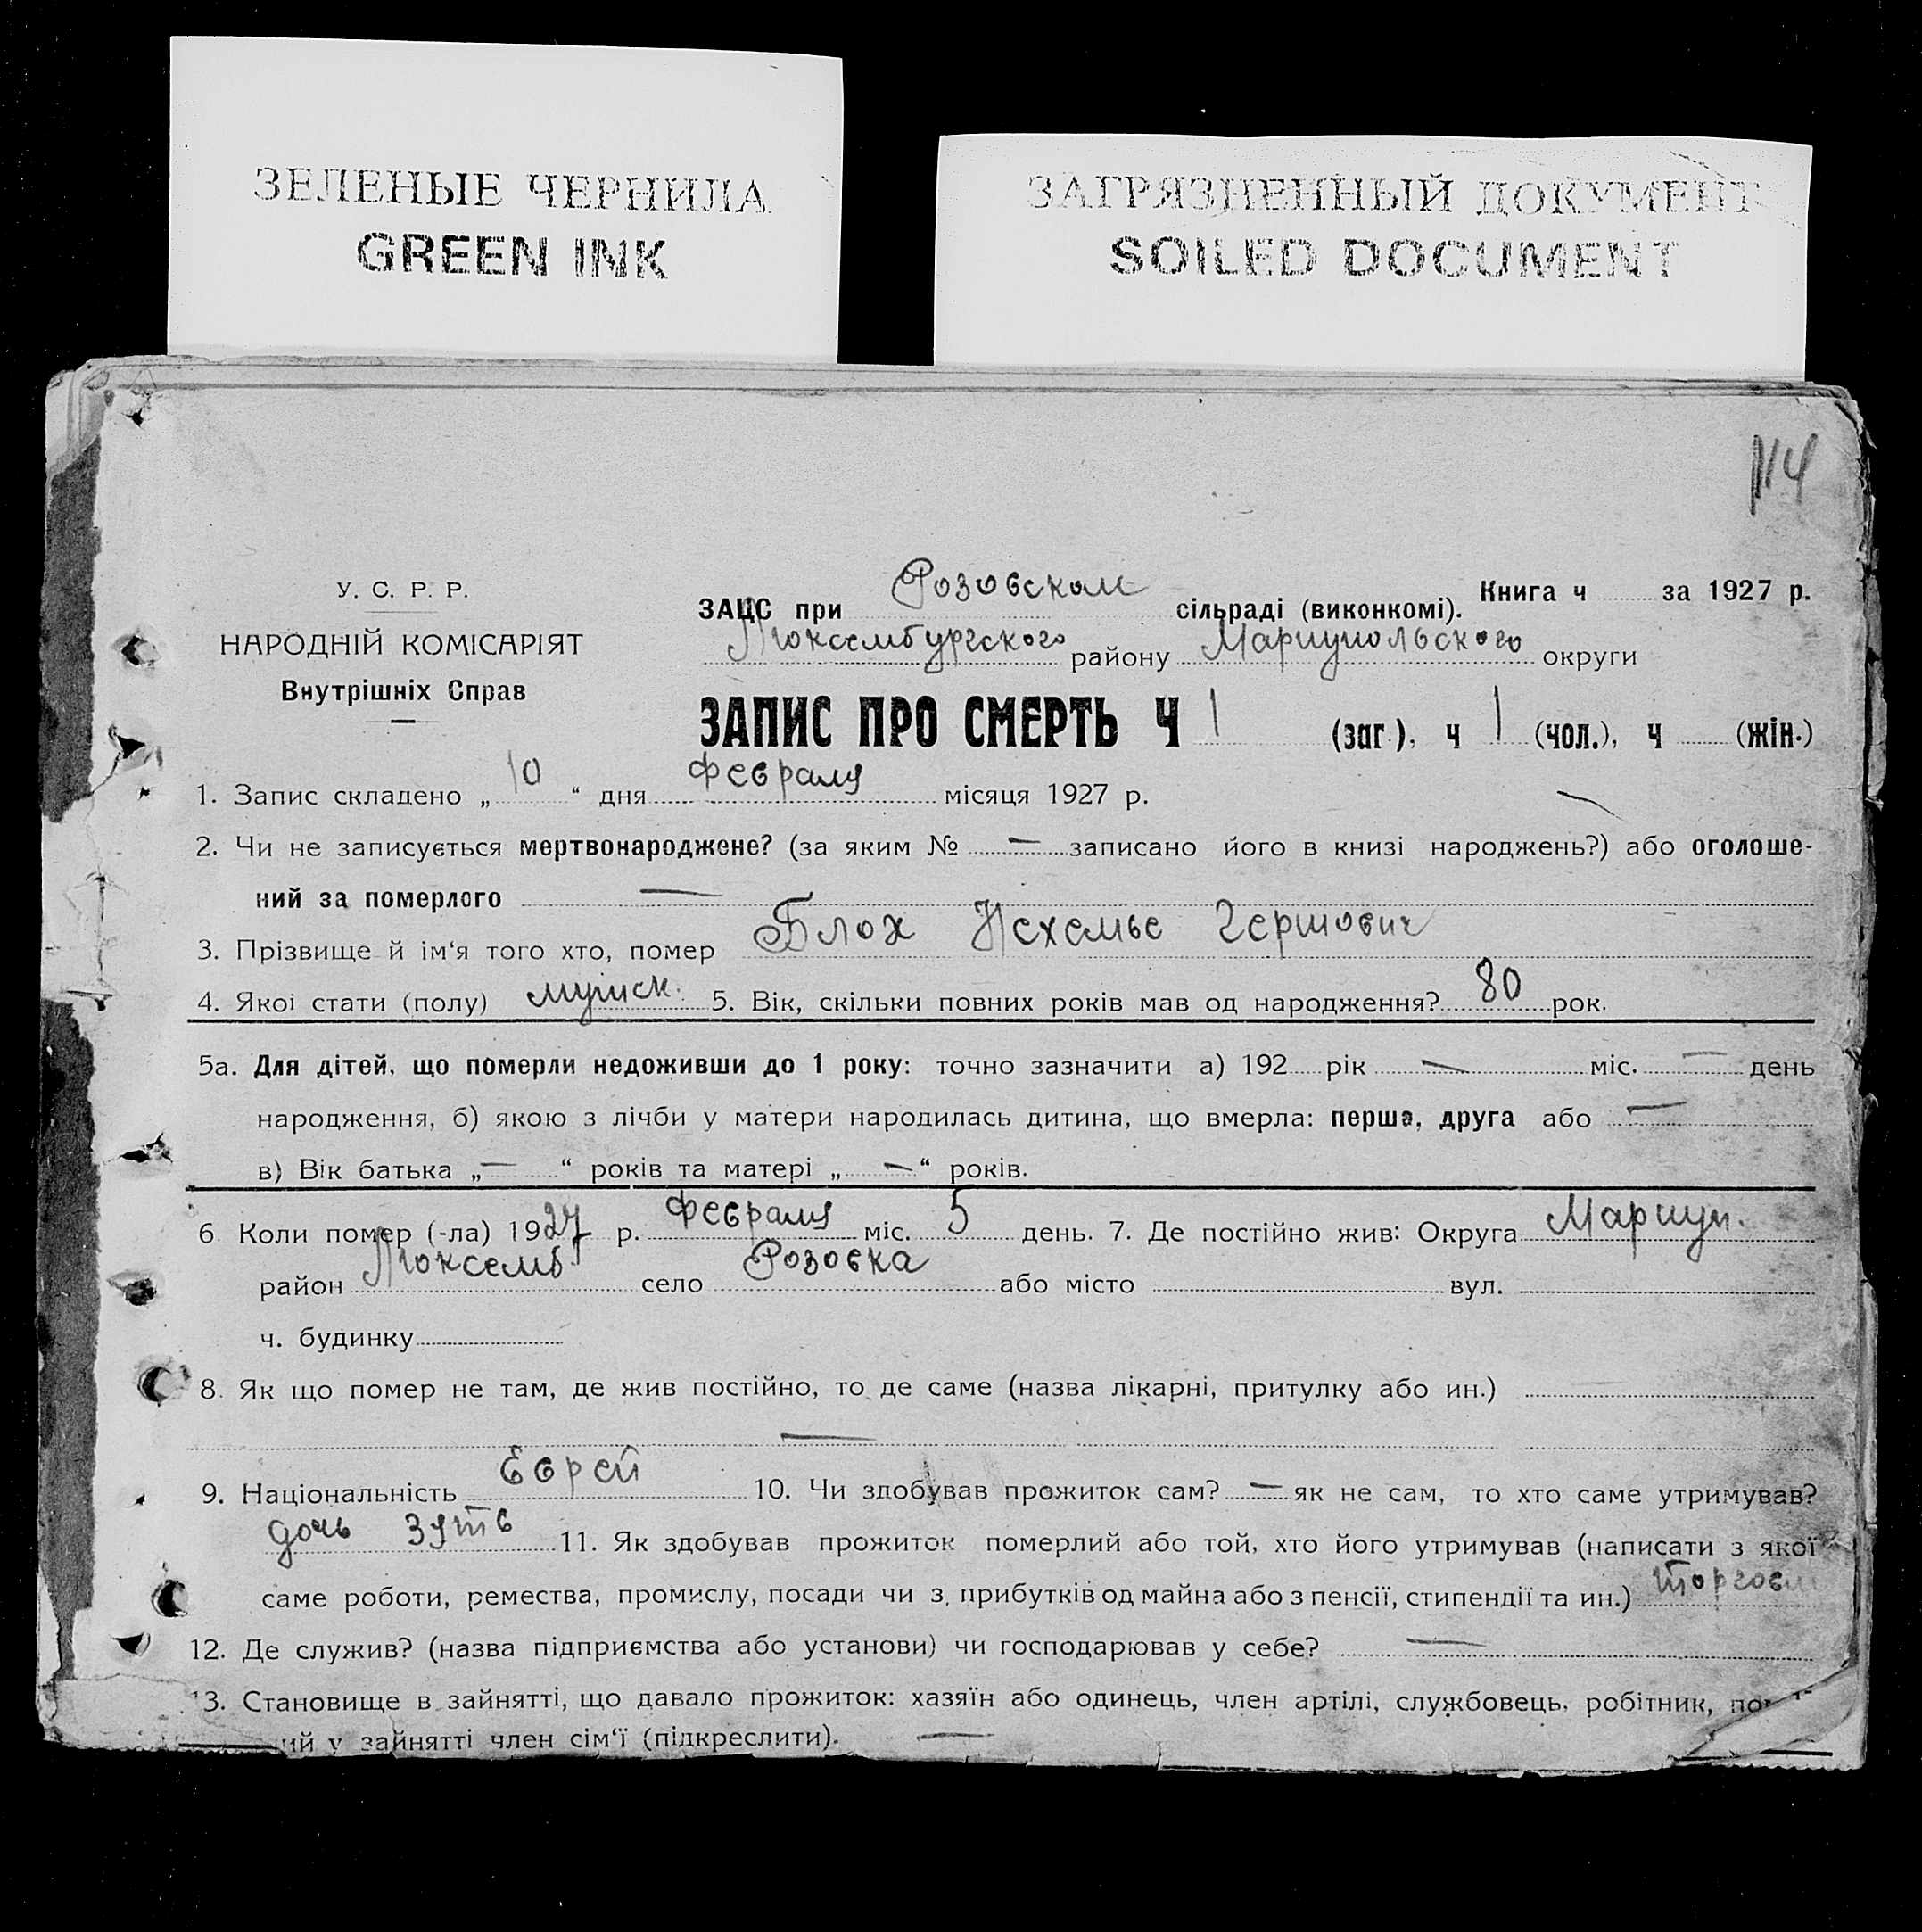 ЗЕЛЕНЫЕ ЧЕРНИЛА
GREEN INK
ЗАГРЯЗНЕННЫЙ ДОКУМЕНТ
SOILED DOCUMENT
114
У. С. Р. Р.
НАРОДНІЙ КОМІСАРІЯТ
Внутрішніх Справ
Книга ч за 1927 р.
ЗАЦС при Розовском сільраді (виконкомі).
Люксембургского району Мариупольского округи
ЗАПИС ПРО СМЕРТЬ Ч 1 (заг.), ч 1 (чол.), ч (жін.)
1. Запис складено „ 10 “ дня Февраля місяця 1927 р.
2. Чи не записується мертвонароджене? (за яким № — записано його в книзі народжень?) або оголоше-
ний за померлого —
3. Прізвище й ім‘я того хто, помер Блох Нехемье Гершович
4. Якої стати (полу) мужск. 5. Вік, скільки повних років мав од народження? 80 рок.
5а. Для дітей, що померли недоживши до 1 року: точно зазначити а) 192 рік — міс. — день
народження, б) якою з лічби у матери народилась дитина, що вмерла: перша, друга або —
в) Вік батька „ — “ років та матері „ — “ років.
6 Коли помер (-ла) 1927 р. Февраля міс. 5 день. 7. Де постійно жив: Округа Мариуп.
район Люксемб. село Розовка або місто вул.
ч. будинку
8. Як що помер не там, де жив постійно, то де саме (назва лікарні, притулку або ин.)
—
9. Національність Еврей 10. Чи здобував прожиток сам? — як не сам, то хто саме утримував?
дочь зять 11. Як здобував прожиток померлий або той, хто його утримував (написати з якої
саме роботи, ремества, промислу, посади чи з прибутків од майна або з пенсії, стипендії та ин.) торговл
12. Де служив? (назва підприємства або установи) чи господарював у себе? —
13. Становище в зайнятті, що давало прожиток: хазяїн або одинець, член артілі, службовець, робітник,
ий у зайнятті член сім‘ї (підкреслити). —